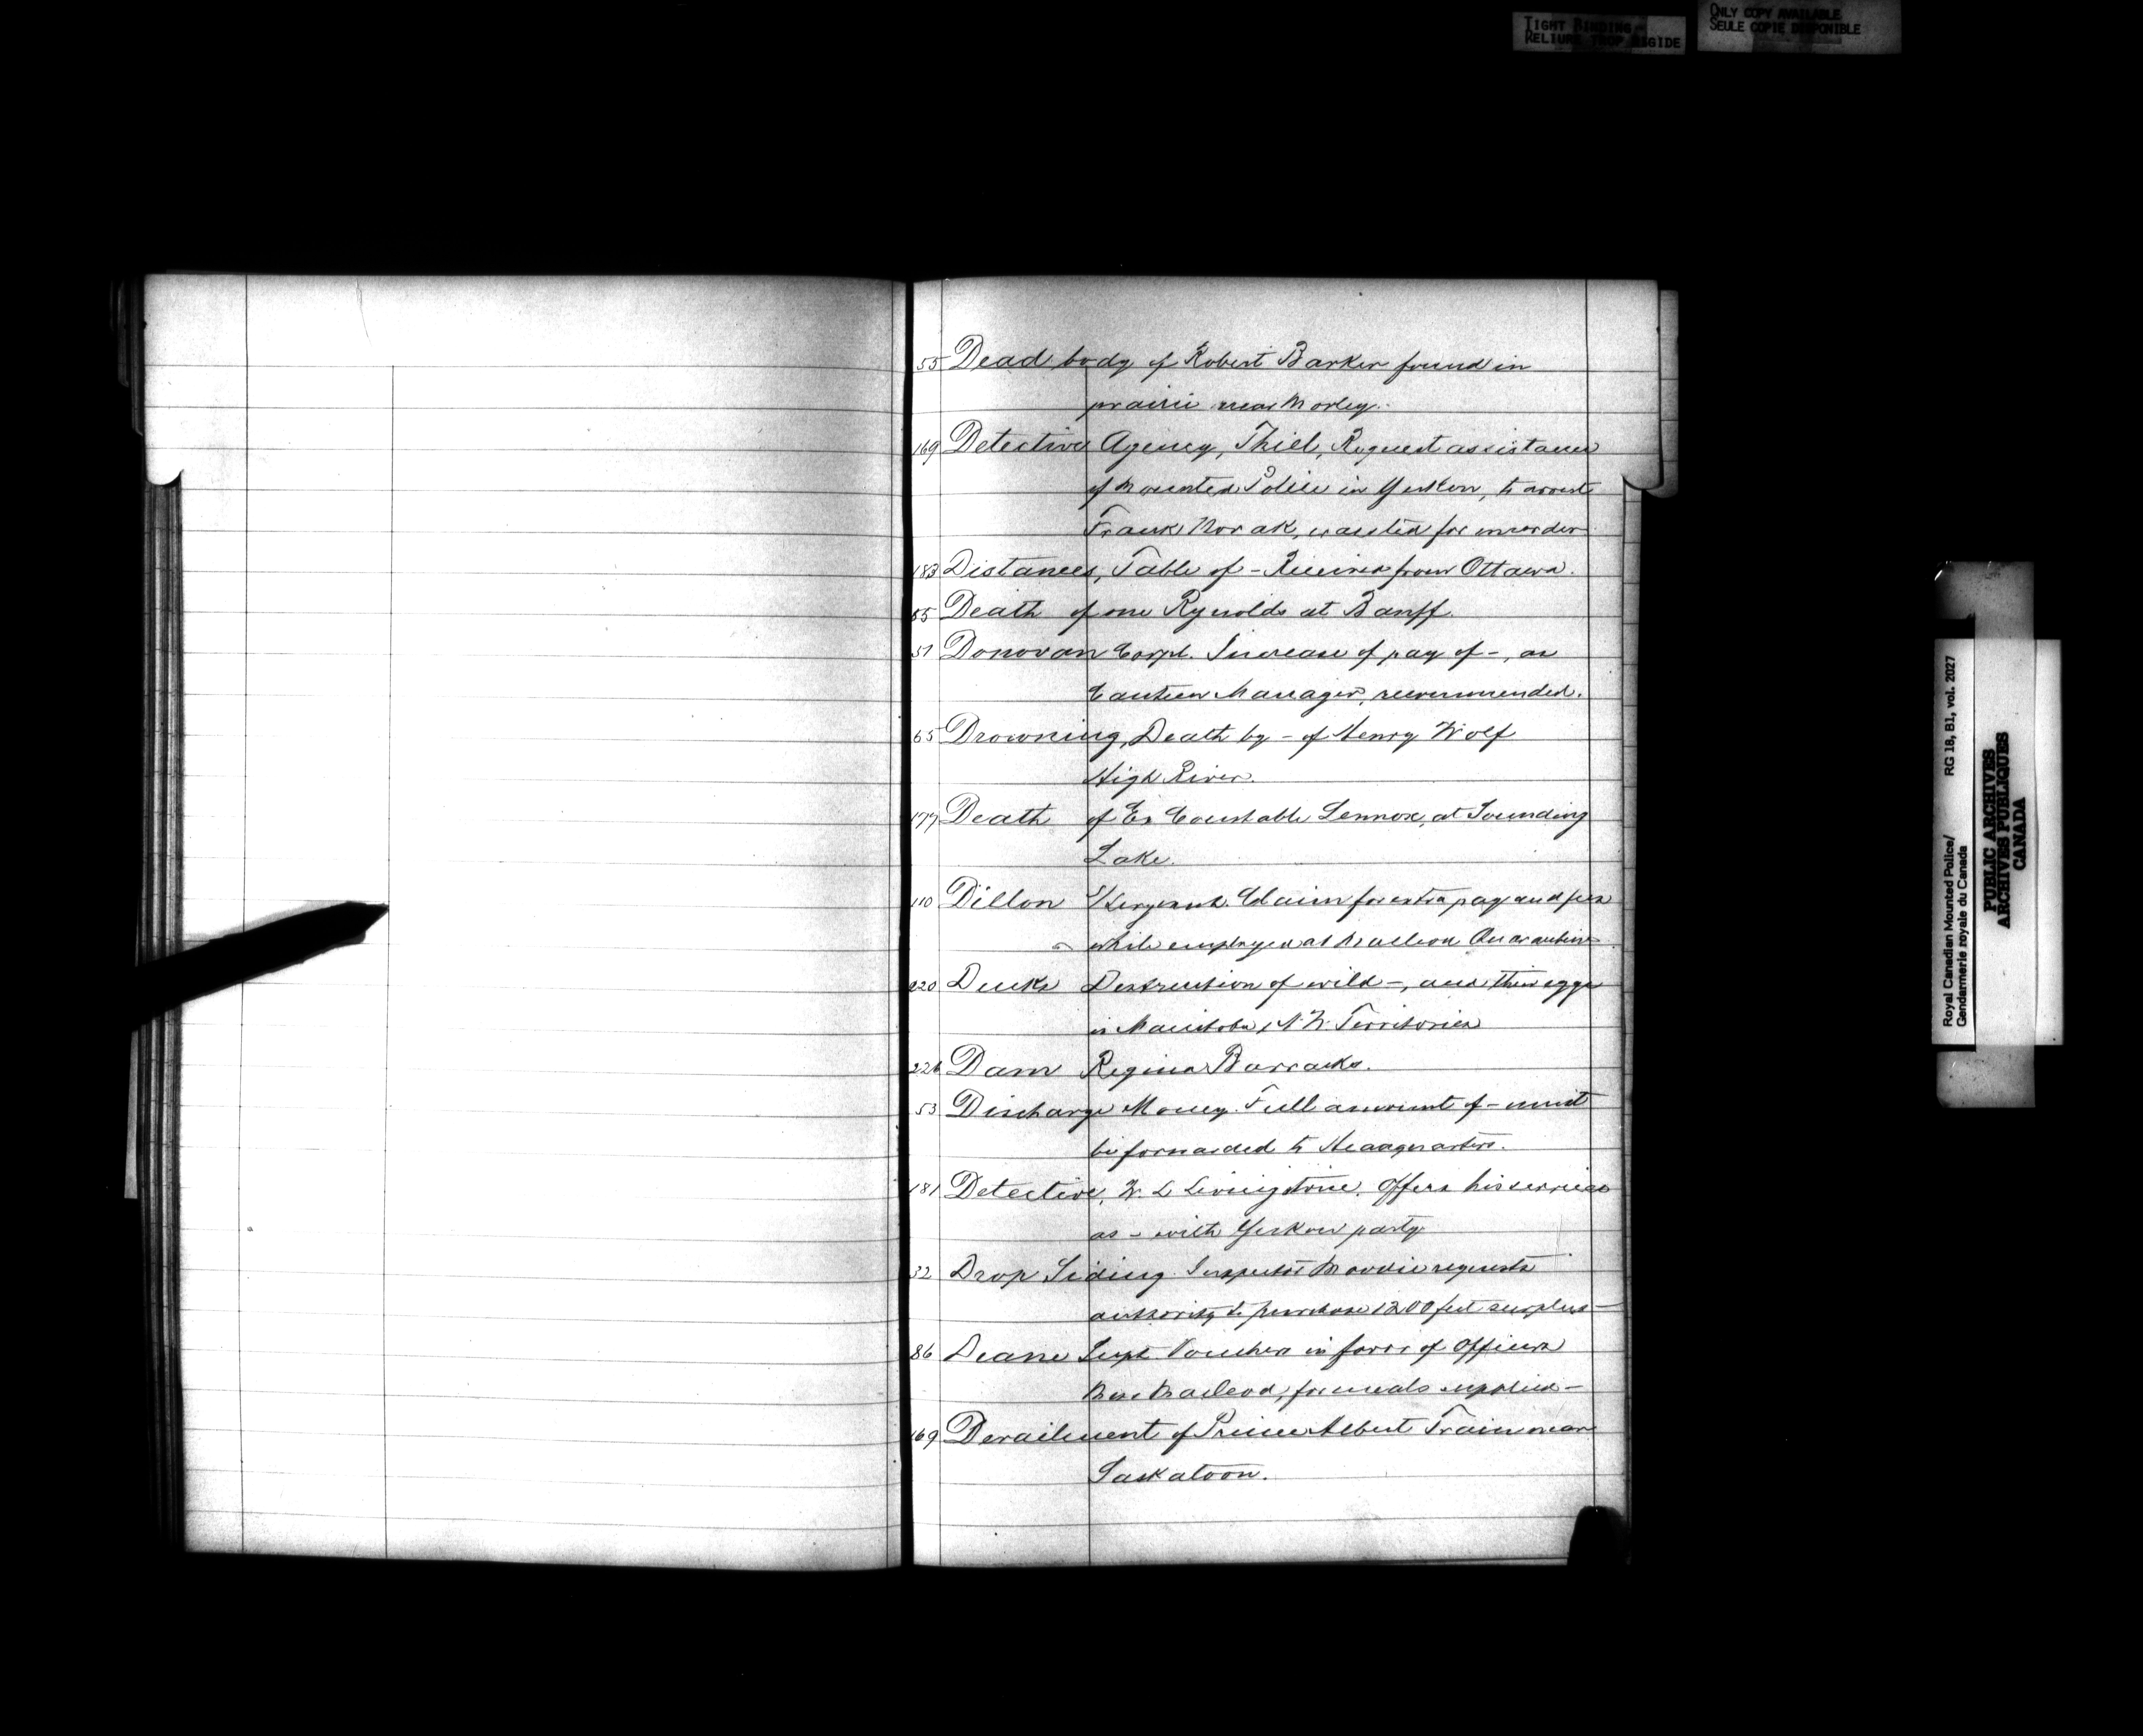 TIGHT BINDING
RELIURE TROP RIGIDE
ONLY COPY AVAILABLE
SEULE COPIE DISPONIBLE
55 Dead body of Robert Barker found in
prairie near Morley.
169 Detective Agency, Thiel, Request assistance
of Mounted Police in Yukon, to arrest
Frank Novak, wanted for murder
183 Distances, Table of - Received from Ottawa.
55 Death of one Reynolds at Banff.
51 Donovan Corpl. Increase of pay of -, as
Canteen Manager, recommended.
65 Drowning, Death by - of Henry Wolf
High River.
177 Death of Ex Constable Lennox, at Sounding
Lake.
110 Dillon S/Sergeant. Claim for extra pay and fees
while employed at Macleod Quarantine
220 Ducks Destruction of wild -, and their eggs
in Manitoba, N.W. Territories
226 Dam Regina Barracks.
53 Discharge Money. Full amount of - must
be forwarded to Headquarters.
181 Detective, W. L Livingstone. Offers his services
as - with Yukon party
32 Drop Siding. Inspector Moodie requests
authority to purchase 1200 feet surplus -
86 Deane Supt. Vouchers in favor of Officers
Mess Macleod, for meals supplied -
169 Derailment of Prince Albert Train near
Saskatoon.
Royal Canadian Mounted Police/
Gendarmerie royale du Canada
RG 18, B1, vol. 2027
PUBLIC ARCHIVES
ARCHIVES PUBLIQUES
CANADA